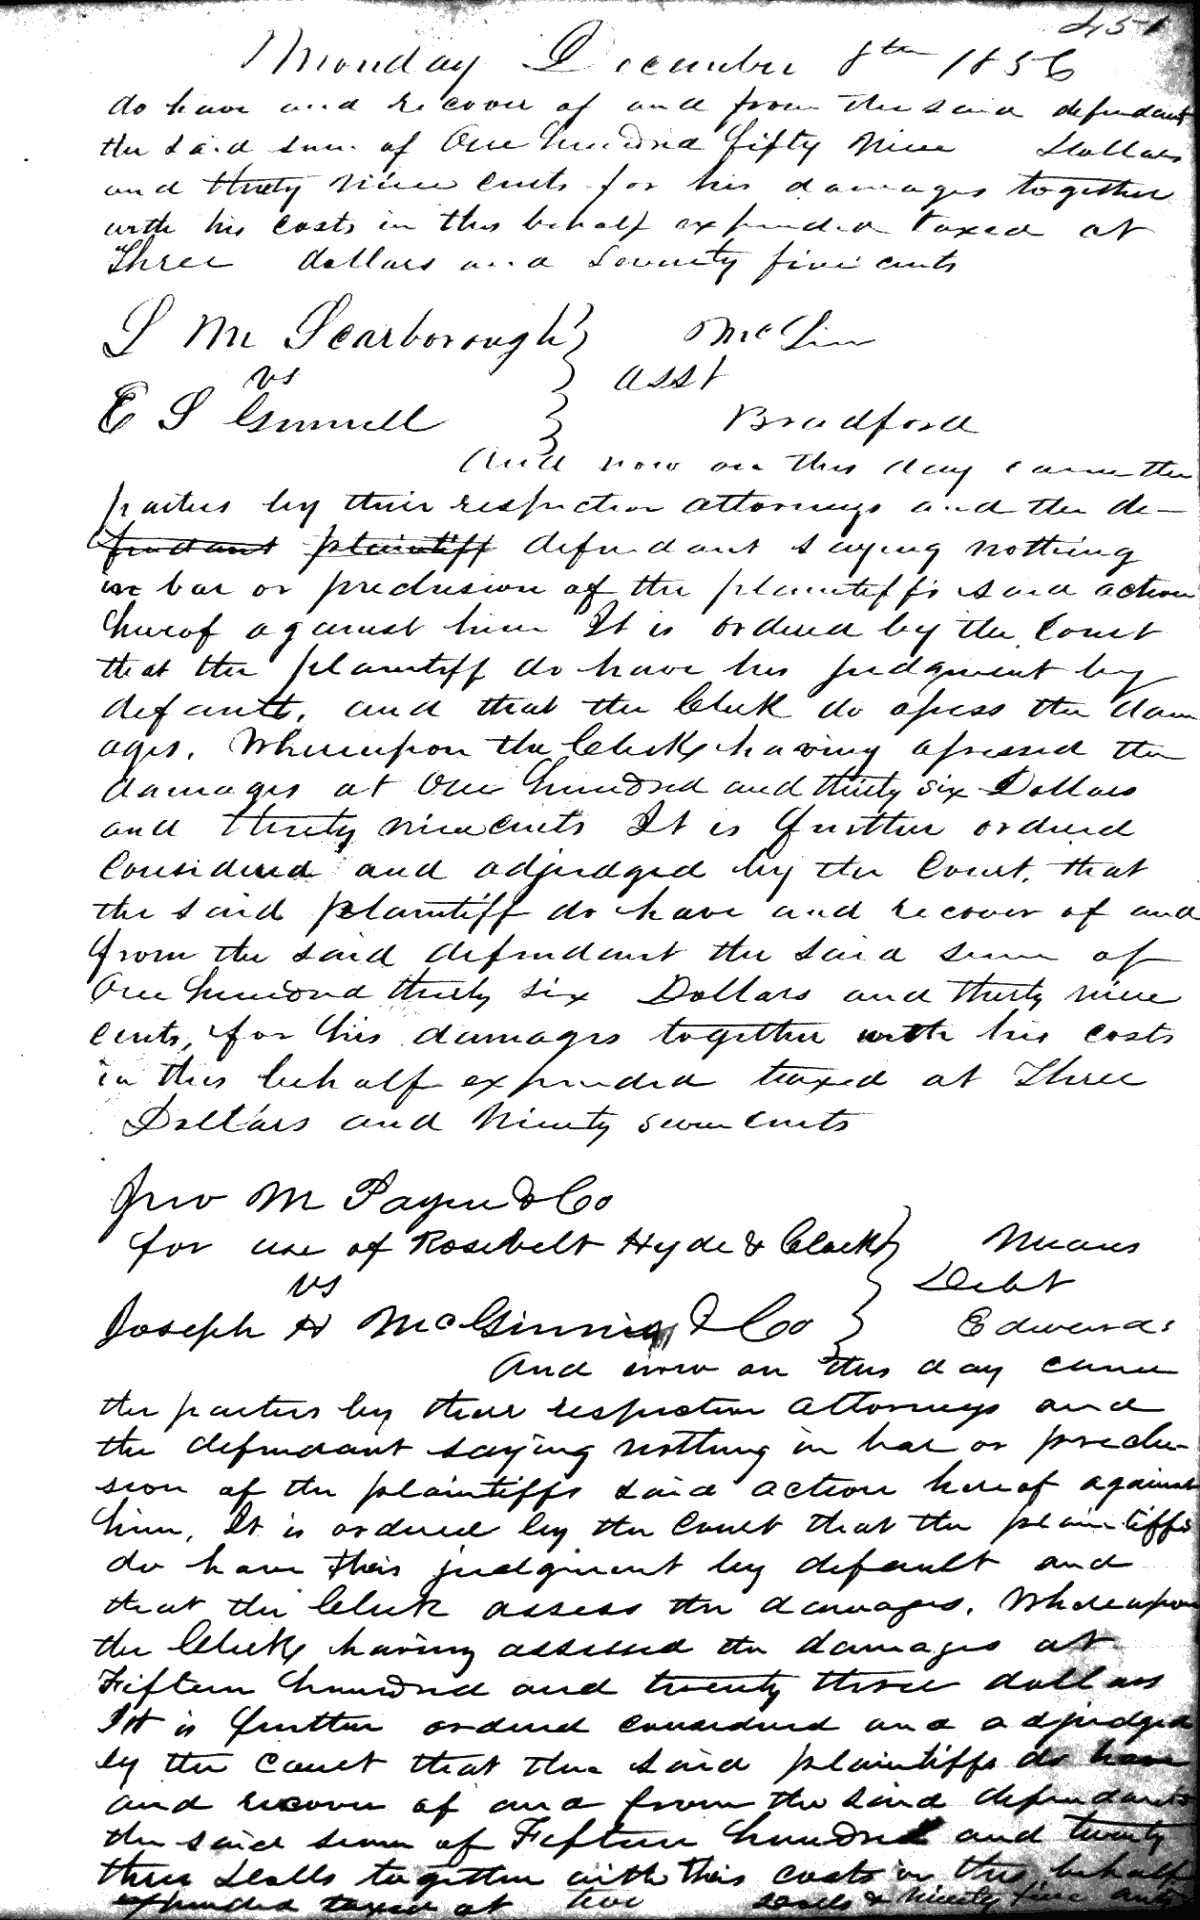 451
Monday December 8th 1856
do have and recover of and from the said defendant
the said sum of One hundred fifty nine Dollars
and thirty nine cents for his damages together
with his costs in this behalf expended taxed at
Three dollars and Seventy five cents
S M Scarborough McLin
vs asst
E S Gunnell Bradford
And now on this day came the
parties by their respective attorneys and the de-
fendant plaintiff defendant saying nothing
in bar or preclusion of the plaintiffs said action
hereof against him It is ordered by the Court
that the plaintiff do have his judgment by
default, and that the Clerk do assess the dam
ages. Whereupon the Clerk having assessed the
damages at One hundred and thirty six Dollars
and thirty nine cents It is further ordered
Considered and adjudged by the Court, that
the said plaintiff do have and recover of and
from the said defendant the said sum of
One hundred thirty six Dollars and thirty nine
cents, for his damages together with his costs
in this behalf expended taxed at Three
Dollars and Ninety seven cents
Jno M Payne & Co
for use of Rosebelt Hyde & Clark Means
vs Debt
Joseph H McGinnis & Co Edwards
And now on this day came
the parties by their respective attorneys and
the defendant saying nothing in bar or preclu-
sion of the plaintiffs said action hereof against
him, It is ordered by the Court that the plaintiffs
do have their judgment by default and
that the Clerk assess the damages. Whereupon
the Clerk having assessed the damages at
Fifteen hundred and twenty three dollars
It is further ordered considered and adjudged
by the Court that the said plaintiffs do have
and recover of and from the said defendants
the said sum of Fifteen hundred and twenty
three Dolls together with their costs in this behalf
expended taxed at two Dolls & Ninety five cents